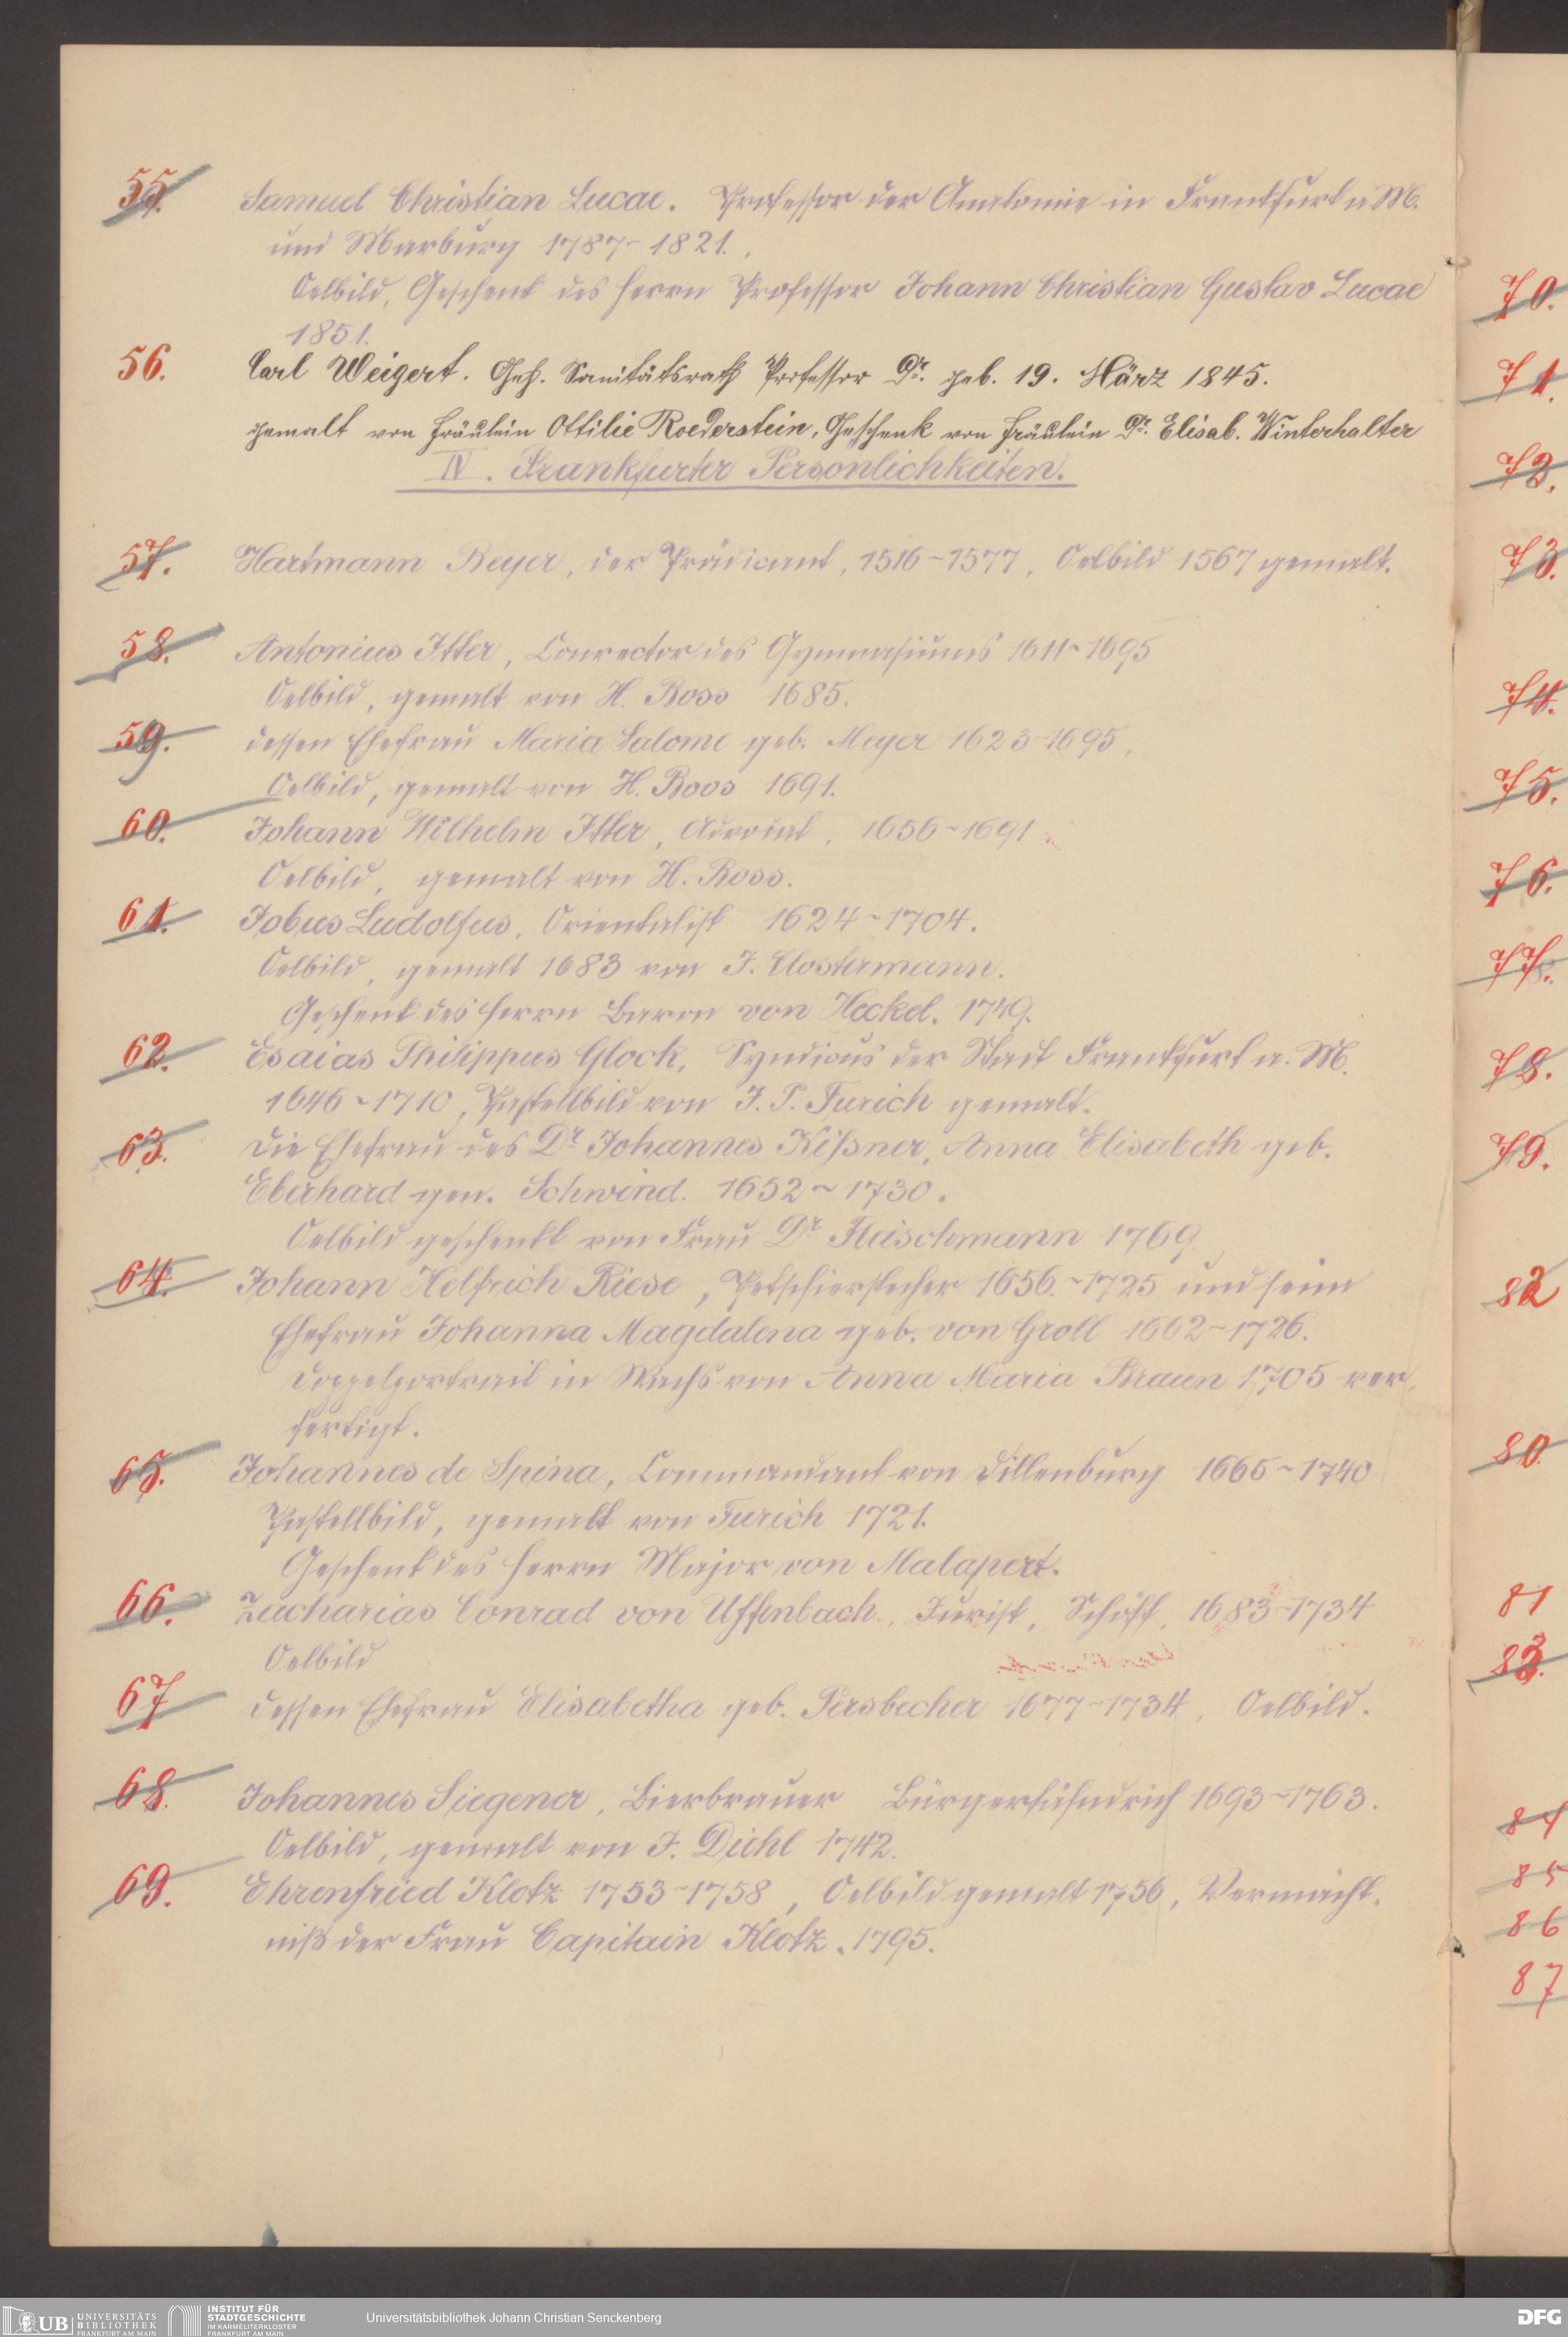 55. Samuel Christian Lucae. Professor der Anatomie in Frankfurt a M.
und Marburg 1787-1821.
Oelbild, Geschenk des Herrn Professor Johann Christian Gustav Lucae
1851.
56. Carl Weigert. Geh. Sanitätsrath Professor Dr. geb. 19. März 1845.
gemalt von Fräulein Ottilie Roederstein, Geschenk von Fräulein Dr. Elisab. Winterhalter
IV. Frankfurter Personlichkeiten.
57. Hartmann Beyer, der Prädicant, 1516-1577, Oelbild 1567 gemalt.
58. Antonius Itter, Conrector des Gymnasiums 1611-1695
Oelbild, gemalt von H. Ross 1685.
59. dessen Ehefrau Maria Salome geb. Meyer 1623-1695,
Oelbild, gemalt von H. Roos 1691.
60. Johann Wilhelm Itter, Advocat, 1656-1691
Oelbild, gemalt von H. Ross.
61. Jobus Ludolfus, Orientalist 1624-1704.
Oelbild, gemalt 1683 von J. Clostermann.
Geschenk des Herrn Baron von Heckel. 1749.
62. Esaias Philippus Glock, Syndicus der Stadt Frankfurt a. M.
1646-1710, Pastellbild von J. P. Furich gemalt.
63. Die Ehefrau des Dr Johannes Kißner, Anna Elisabeth geb.
Eberhard gen. Schwind. 1652-1730.
Oelbild geschenkt von Frau Dr Fleischmann 1769
64. Johann Helfrich Riese, Petschierstecher 1656.-1725 und seine
Ehefrau Johanna Magdalena geb. von Groll 1662-1726.
Doppelportrait in Wachs von Anna Maria Braun 1705 ver-
fertigt.
65. Johannes de Spina, Commandant von Dillenburg 1665-1740
Pastellbild, gemalt von Furich 1721.
Geschenk des Herrn Major von Malapert.
66. Zacharias Conrad von Uffenbach, Jurist, Schöff, 1683-1734
Oelbild
67 dessen Ehefrau Elisabetha geb. Persbecher 1677-1734, Oelbild.
68. Johannes Siegener, Bierbrauer Bürgerfähndrich 1693-1763.
Oelbild, gemalt von J. Diehl 1742.
69. Ehrenfried Klotz 1753-1758, Oelbild gemalt 1756, Vermächt-
niß der Frau Capitain Klotz. 1795.
70.
71.
72.
73.
74.
75.
76.
77.
78.
79.
82
80.
81
83.
84
85
86
87
UB UNIVERSITÄTS
BIBLIOTHEK
FRANKFURT AM MAIN
INSTITUT FÜR
STADTGESCHICHTE
IM KARMELITERKLOSTER
FRANKFURT AM MAIN
Universitätsbibliothek Johann Christian Senckenberg
DFG